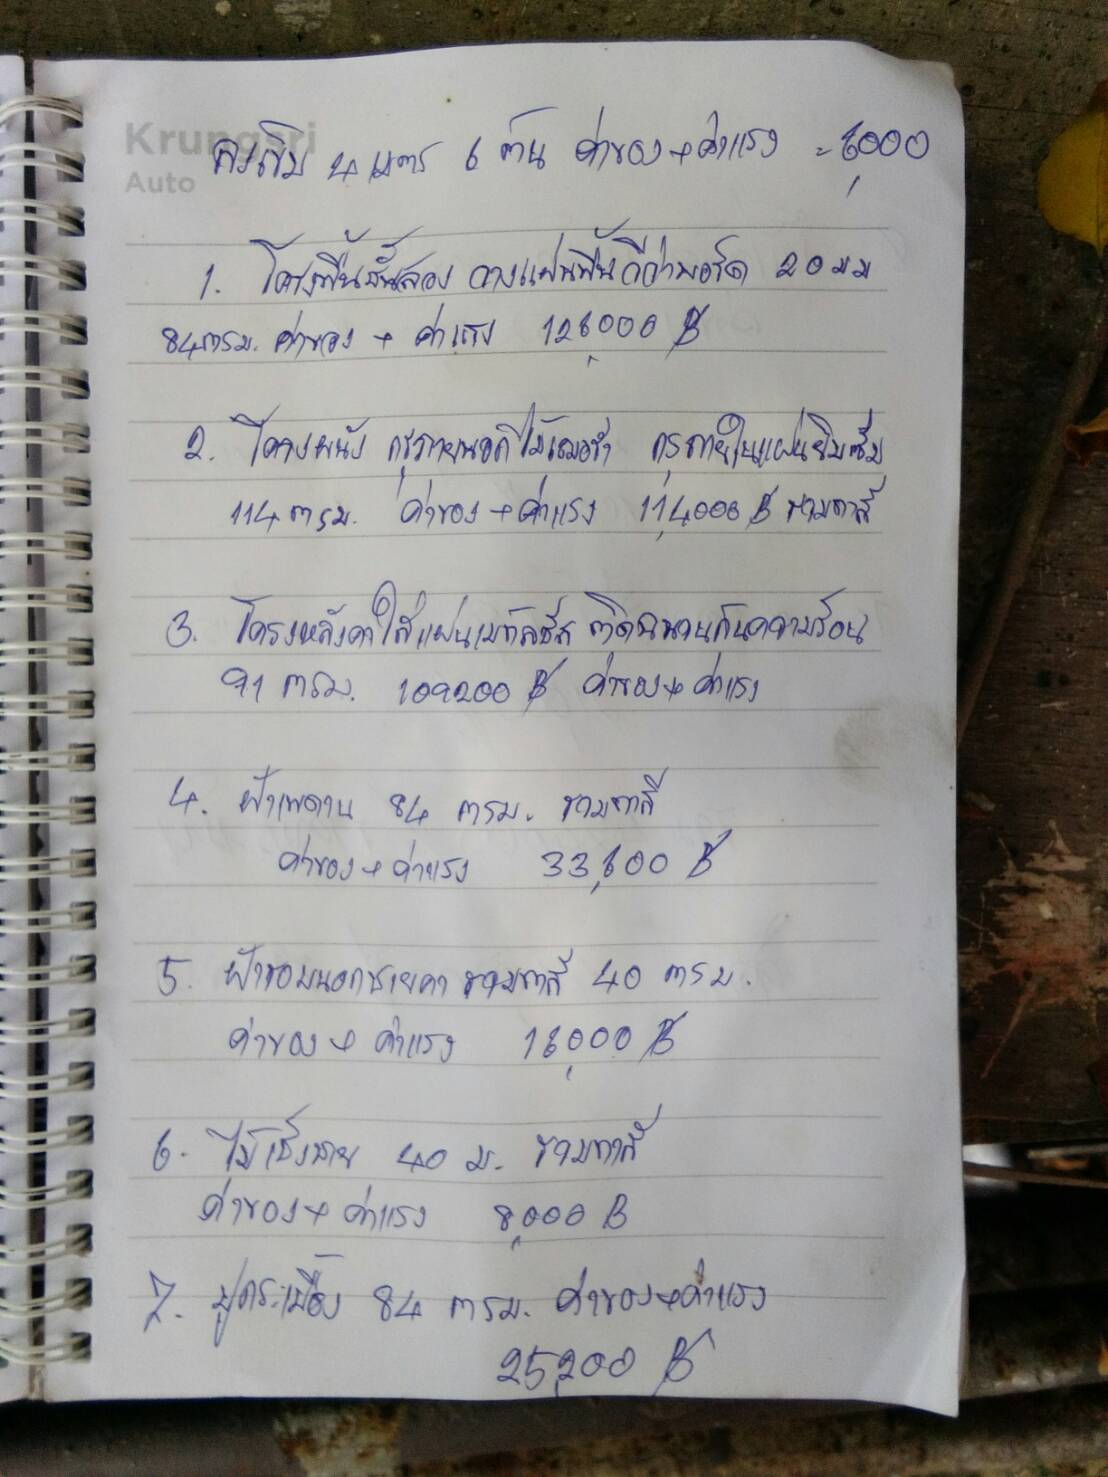 Krungsri
Auto
ลงเข็ม 4 เมตร 6 ต้น ค่าของ + ค่าแรง = 6,000
1. โครงพื้นชั้นสอง วางแผ่นพื้นวีว่าบอร์ด 20 มม
84 ตรม. ค่าของ + ค่าแรง 126,000 ฿
2. โครงผนัง กรุภายนอกไม้เฌอร่า กรุภายในแผ่นยิบซั่ม
114 ตรม. ค่าของ + ค่าแรง 114,000 ฿ รวมทาสี
3. โครงหลังคาใส่แผ่นเมทัลชีส ติดฉนวนกันความร้อน
91 ตรม. 109200 ฿ ค่าของ + ค่าแรง
4. ฝ้าเพดาน 84 ตรม. รวมทาสี
ค่าของ + ค่าแรง 33,600 ฿
5. ฝ้ารอบนอกชายคา รวมทาสี 40 ตรม.
ค่าของ + ค่าแรง 16,000 ฿
6. ไม้เชิงชาย 40 ม. รวมทาสี
ค่าของ + ค่าแรง 8,000 ฿
7. ปูกระเบื้อง 84 ตรม. ค่าของ + ค่าแรง
25,200 ฿